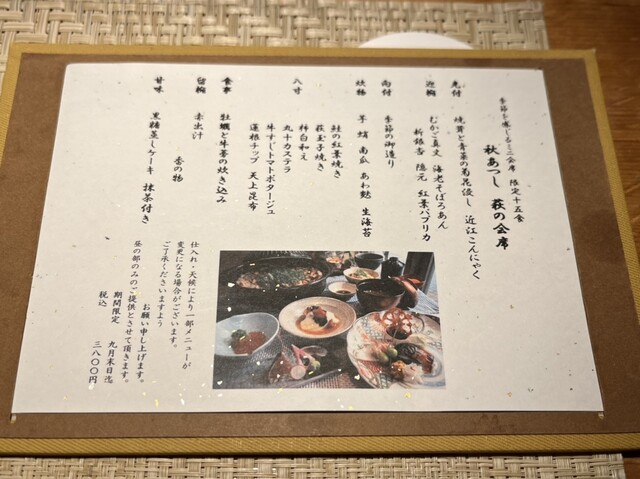 季節を感じるミニ会席 限定十五食
秋あつし 萩の会席
先付 焼茸と青菜の菊花浸し 近江こんにゃく
迎椀 むかご真丈 海老そぼろあん
新銀杏 隠元 紅葉パプリカ
向付 季節の御造り
炊物 芋 蛸 南瓜 あわ麩 生海苔
八寸 鮭の紅葉焼き
萩玉子焼き
柿白和え
丸十カステラ
牛すじトマトポタージュ
蓮根チップ 天上昆布
食事 牡蠣と牛蒡の炊き込み
香の物
留椀 赤出汁
甘味 黒糖蒸しケーキ 抹茶付き
仕入れ・天候により一部メニューが
変更になる場合がございます。
ご了承くださいますよう
お願い申し上げます。
昼の部のみのご提供とさせて頂きます。
期間限定 九月末日迄
税込 三八〇〇円